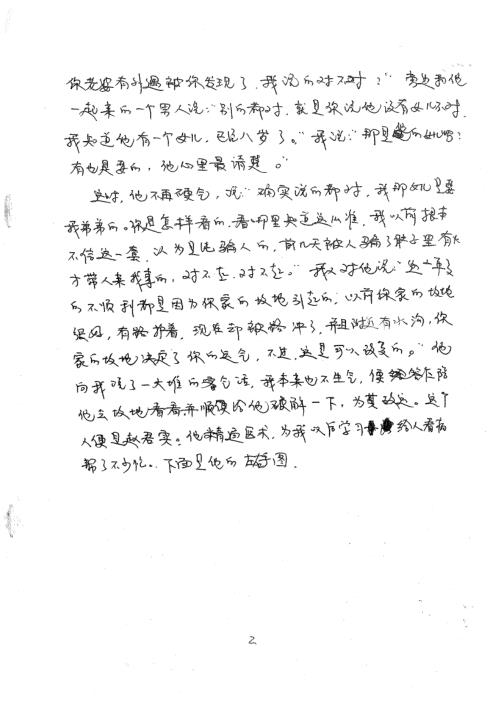 你老婆有外遇被你发现了,我说的对不对?"旁边和他
一起来的一个男人说:"别的都对,就是你说他没有女儿不对,
我知道他有一个女儿,已经八岁了。"我说:"那是他的女儿吗?
有也是要的,他心里最清楚。"
这时,他不再硬气,说:"确实说的都对,我那女儿是要
我弟弟的。你是怎样看的,看哪里知道这么准,我以前根本
不信这一套,认为是骗人的,前几天被人骗了肚子里有火
才带人来找事的,对不起,对不起。"我又对他说:"这一年多
的不顺利都是因为你家的坟地引起的,以前你家的坟地
很好,有路护着,现在却被路冲了,并且附近有水沟,你
家的坟地决定了你的运气,不过,这是可以改变的。"他
向我说了一大堆的客气话,我本来也不生气,便答应陪
他去坟地看看并顺便给他破解一下,为其改运。这个
人便是赵君实。他精通医术,为我以后学习给人看病
帮了不少忙。下面是他的右手图.
2